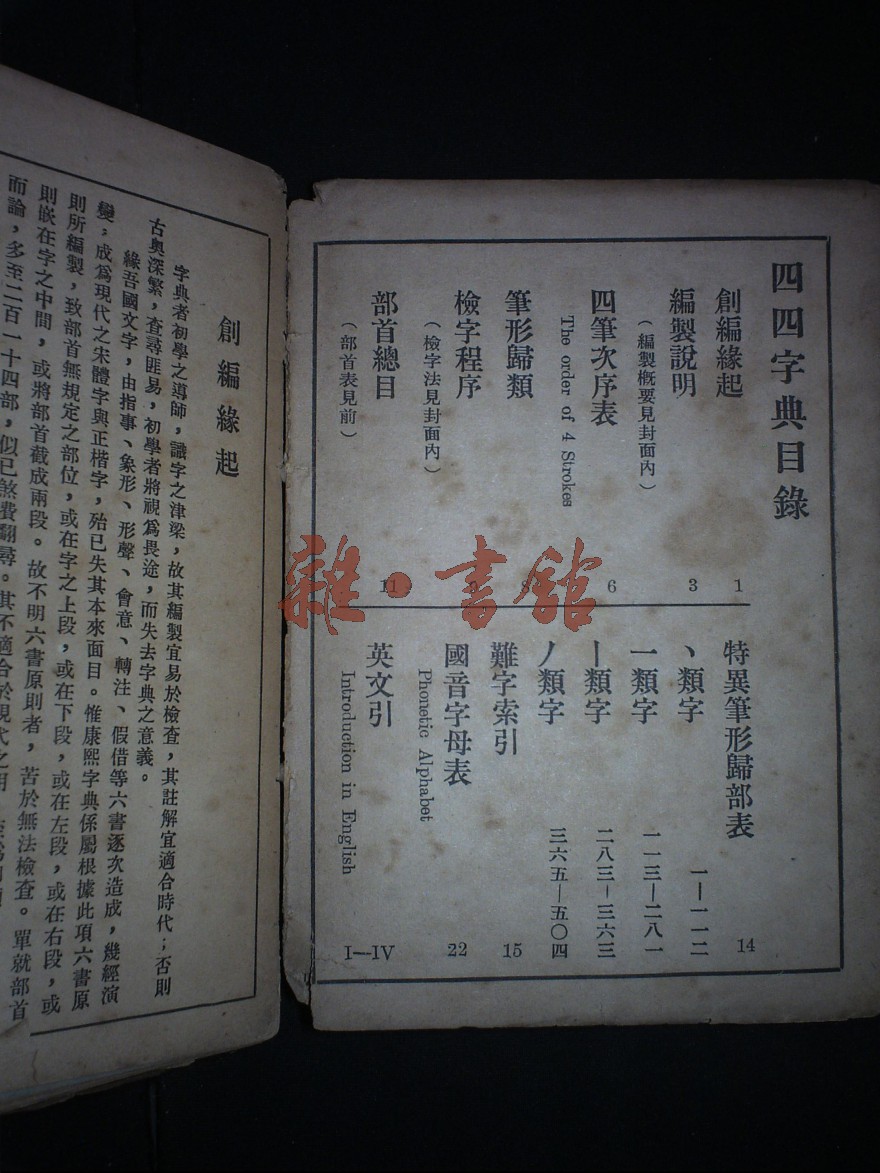 四四字典目錄
創編緣起 1
編製說明 3
(編製概要見封面內)
四筆次序表 6
The order of 4 Strokes
筆形歸類 8
檢字程序
(檢字法見封面內)
部首總目 11
(部首表見前)
特異筆形歸部表 14
丶類字 一—一一二
一類字 一一三—二八一
丨類字 二八三—三六三
丿類字 三六五—五〇四
難字索引 15
國音字母表 22
Phonetic Alphabet
英文引
Introduction in English I—IV
創編緣起
字典者初學之導師,識字之津梁,故其編製宜易於檢查,其註解宜適合時代;否則
古奧深繁,查尋匪易,初學者將視爲畏途,而失去字典之意義。
緣吾國文字,由指事、象形、形聲、會意、轉注、假借等六書逐次造成,幾經演
變,成爲現代之宋體字與正楷字,殆已失其本來面目。惟康熙字典係屬根據此項六書原
則所編製,致部首無規定之部位,或在字之上段,或在下段,或在左段,或在右段,或
則嵌在字之中間,或將部首截成兩段。故不明六書原則者,苦於無法檢查。單就部首
而論,多至二百一十四部,似已煞費翻尋。其不適合於現代之用
雜·書館